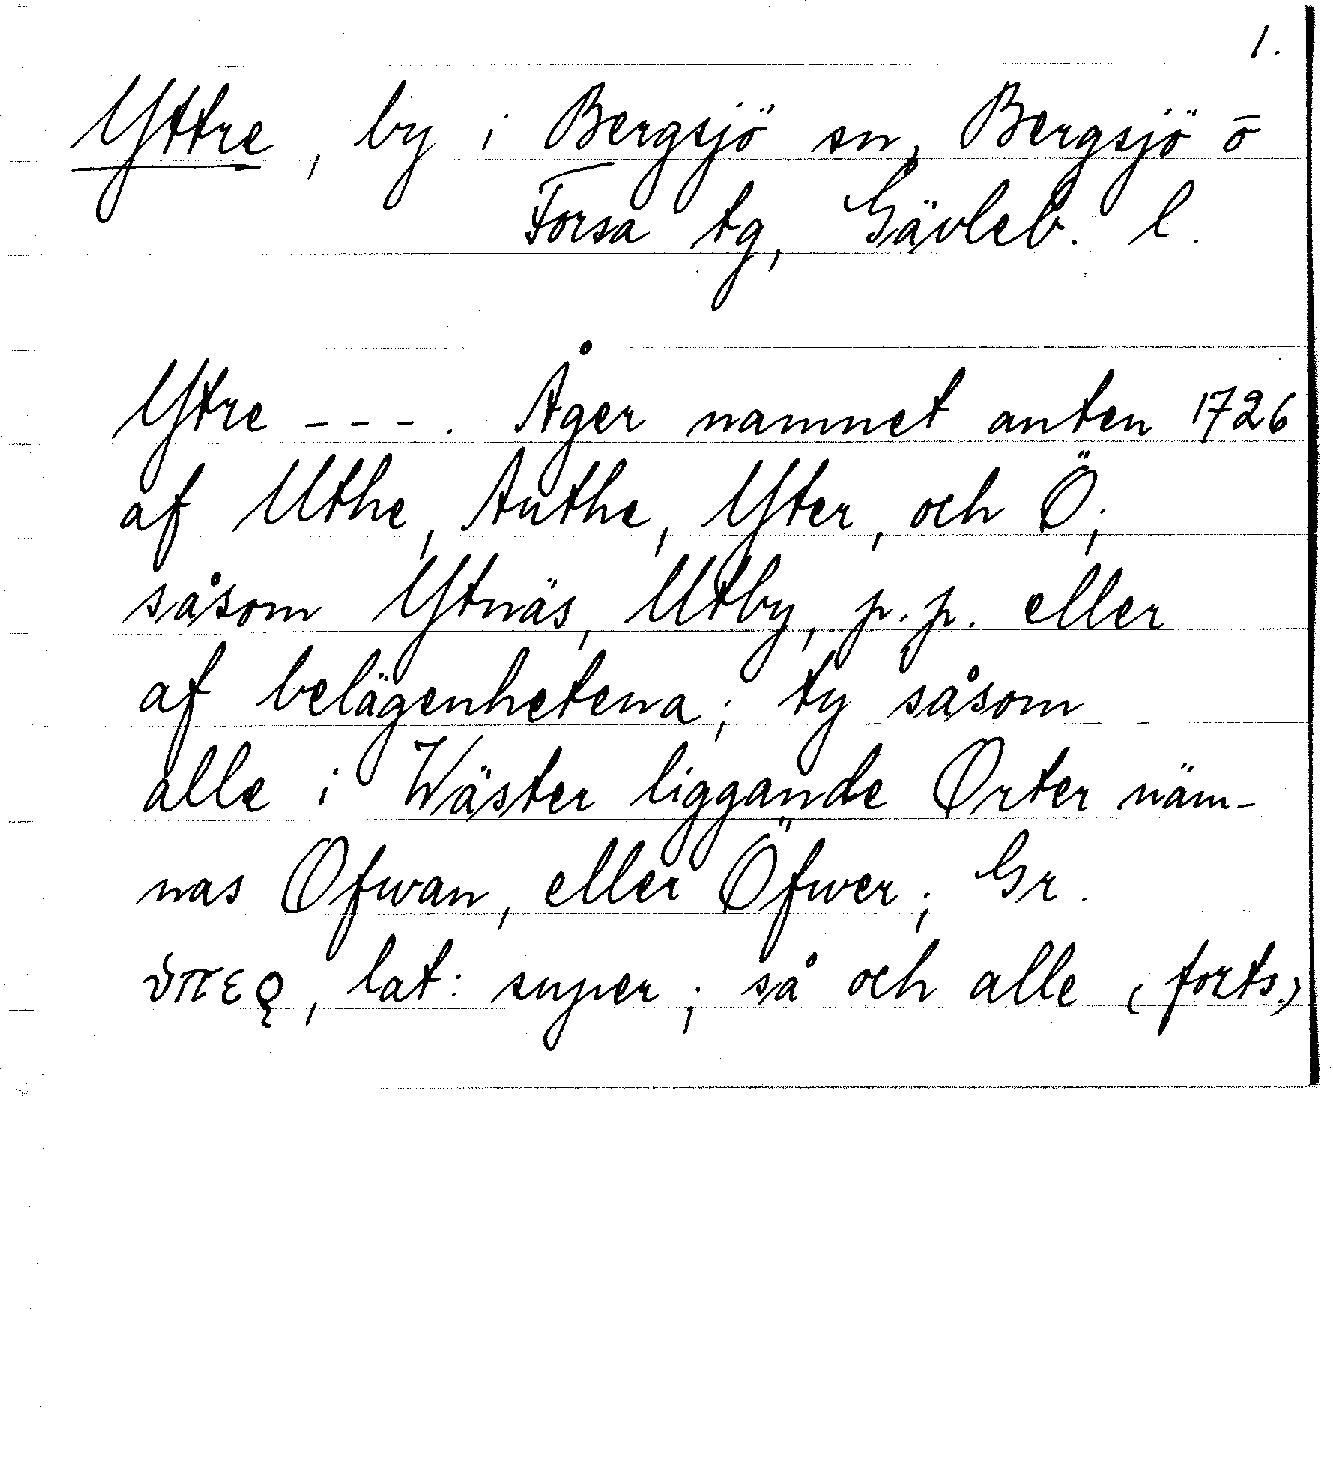 1.
Yttre, by i Bergsjö sn, Bergsjö o
Forsa tg, Gävleb. l.
Ytre - - - . Åger namnet anten 1726
af Uthe, Authe, Yter, och Ö;
såsom Ytnäs, Utby, p.p. eller
af belägenhetena; ty såsom
alle i Wäster liggande Orter näm-
nas Ofwan, eller Öfwer; Gr.
ὑπερ, lat: super; så och alle (forts)